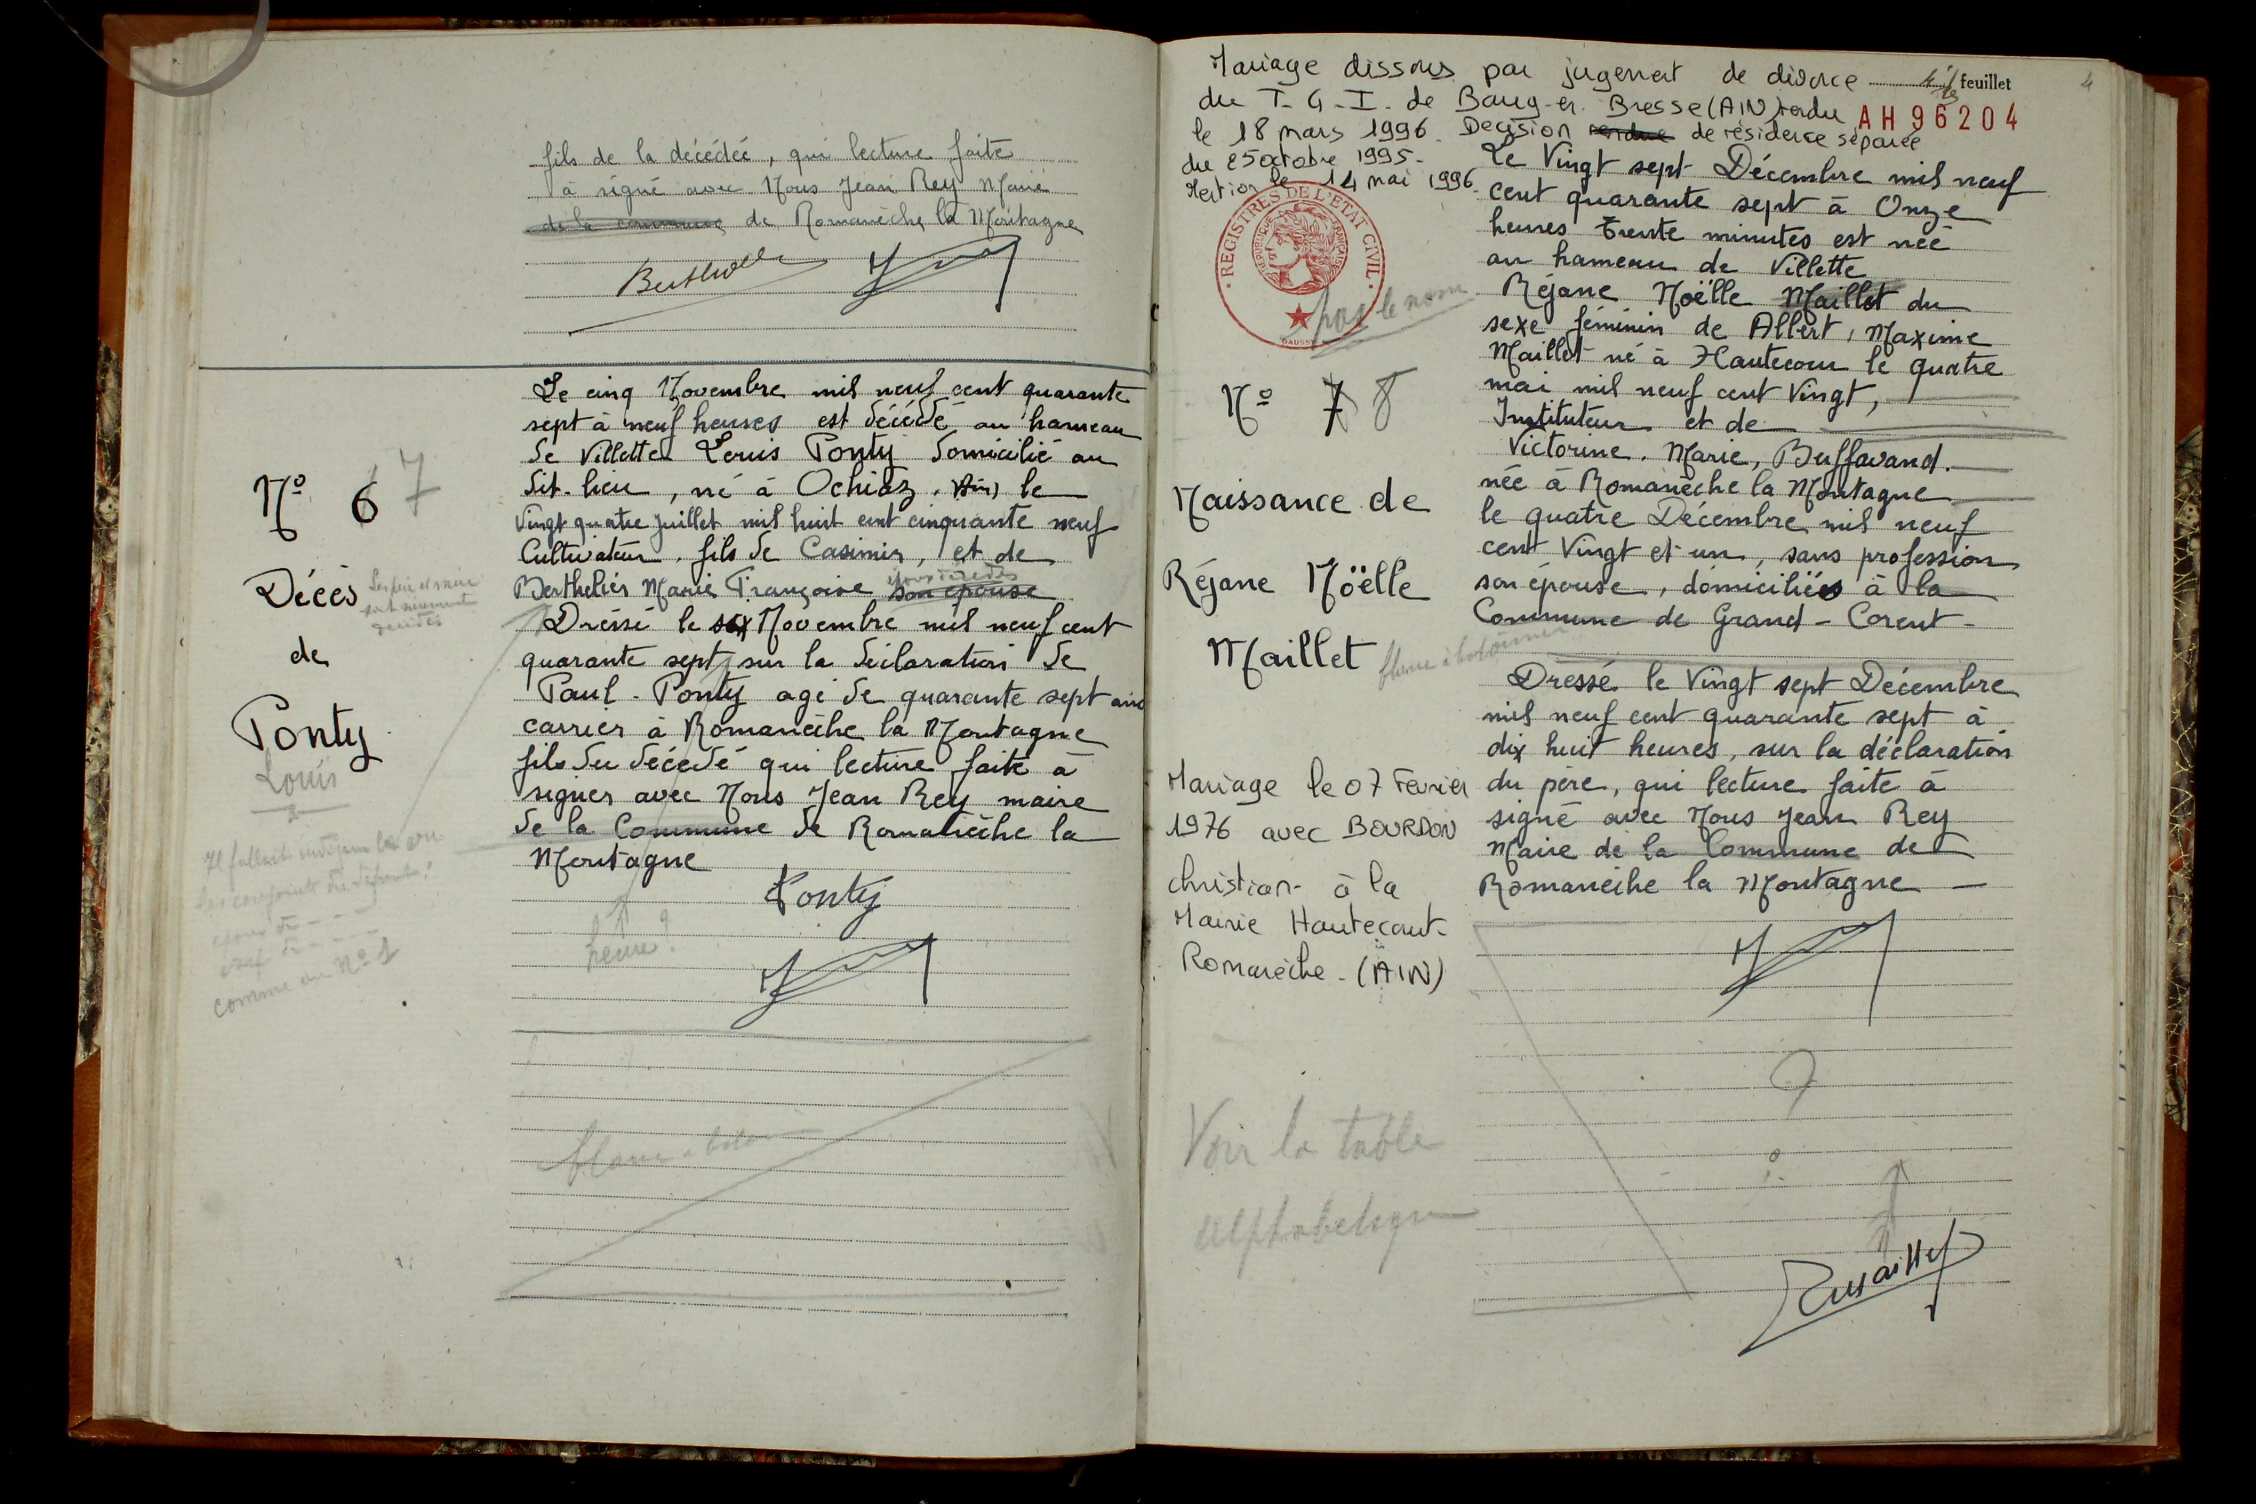 fils de la décédée, qui lecture faite
à signé avec Nous Jean Rey Maire
de la commune de Romanèche la Montagne
N° 6 7
Décès
de
Ponty
Louis
Le cinq Novembre mil neuf cent quarante
sept à neuf heures est décédé au hameau
de Villette Louis Ponty domicilié au
dit-lieu, né à Ochiaz (Ain) le
Vingt quatre juillet mil huit cent cinquante neuf
Cultivateur. fils de Casimir, et de
Berthelier Marie Françoise son épouse
Dressé le six Novembre mil neuf cent
quarante sept, sur la déclaration de
Paul Ponty agé de quarante sept ans
carrier à Romanèche la Montagne
fils du décédé qui lecture faite à
signer avec Nous Jean Rey maire
de la Commune de Romanèche la
Montagne
Ponty
heure ?
Il fallait indiquer le ou
les conjoints du défunt !
époux de
veuf de
comme au N° 1
Mariage dissous par jugement de divorce
du T.G.I. de Bourg-en-Bresse (AIN) rendu
le 18 mars 1996. Décision rendue de résidence séparée
du 25 octobre 1995.
Mention le 14 mai 1996.
feuillet
4
AH 96204
REGISTRES DE L'ETAT CIVIL
REPUBLIQUE FRANÇAISE
pas le nom
N° 7 8
Naissance de
Réjane Noëlle
Maillet
Mariage le 07 Février
1976 avec BOURDON
Christian à la
Mairie Hautecourt-
Romanèche - (AIN)
Voir la table
alphabétique
Le Vingt sept Décembre mil neuf
cent quarante sept à Onze
heures Trente minutes est née
au hameau de Villette
Réjane Noëlle Maillet du
sexe féminin de Albert, Maxime
Maillet né à Hautecour le quatre
mai mil neuf cent Vingt,
Instituteur et de
Victorine. Marie, Buffavand.
née à Romanèche la Montagne
le quatre Décembre mil neuf
cent Vingt et un, sans profession
son épouse, domiciliés à la
Commune de Grand-Corent-
Dressé le Vingt sept Décembre
mil neuf cent quarante sept à
dix huit heures, sur la déclaration
du père, qui lecture faite à
signé avec Nous Jean Rey
Maire de la Commune de
Romanèche la Montagne
Maillet